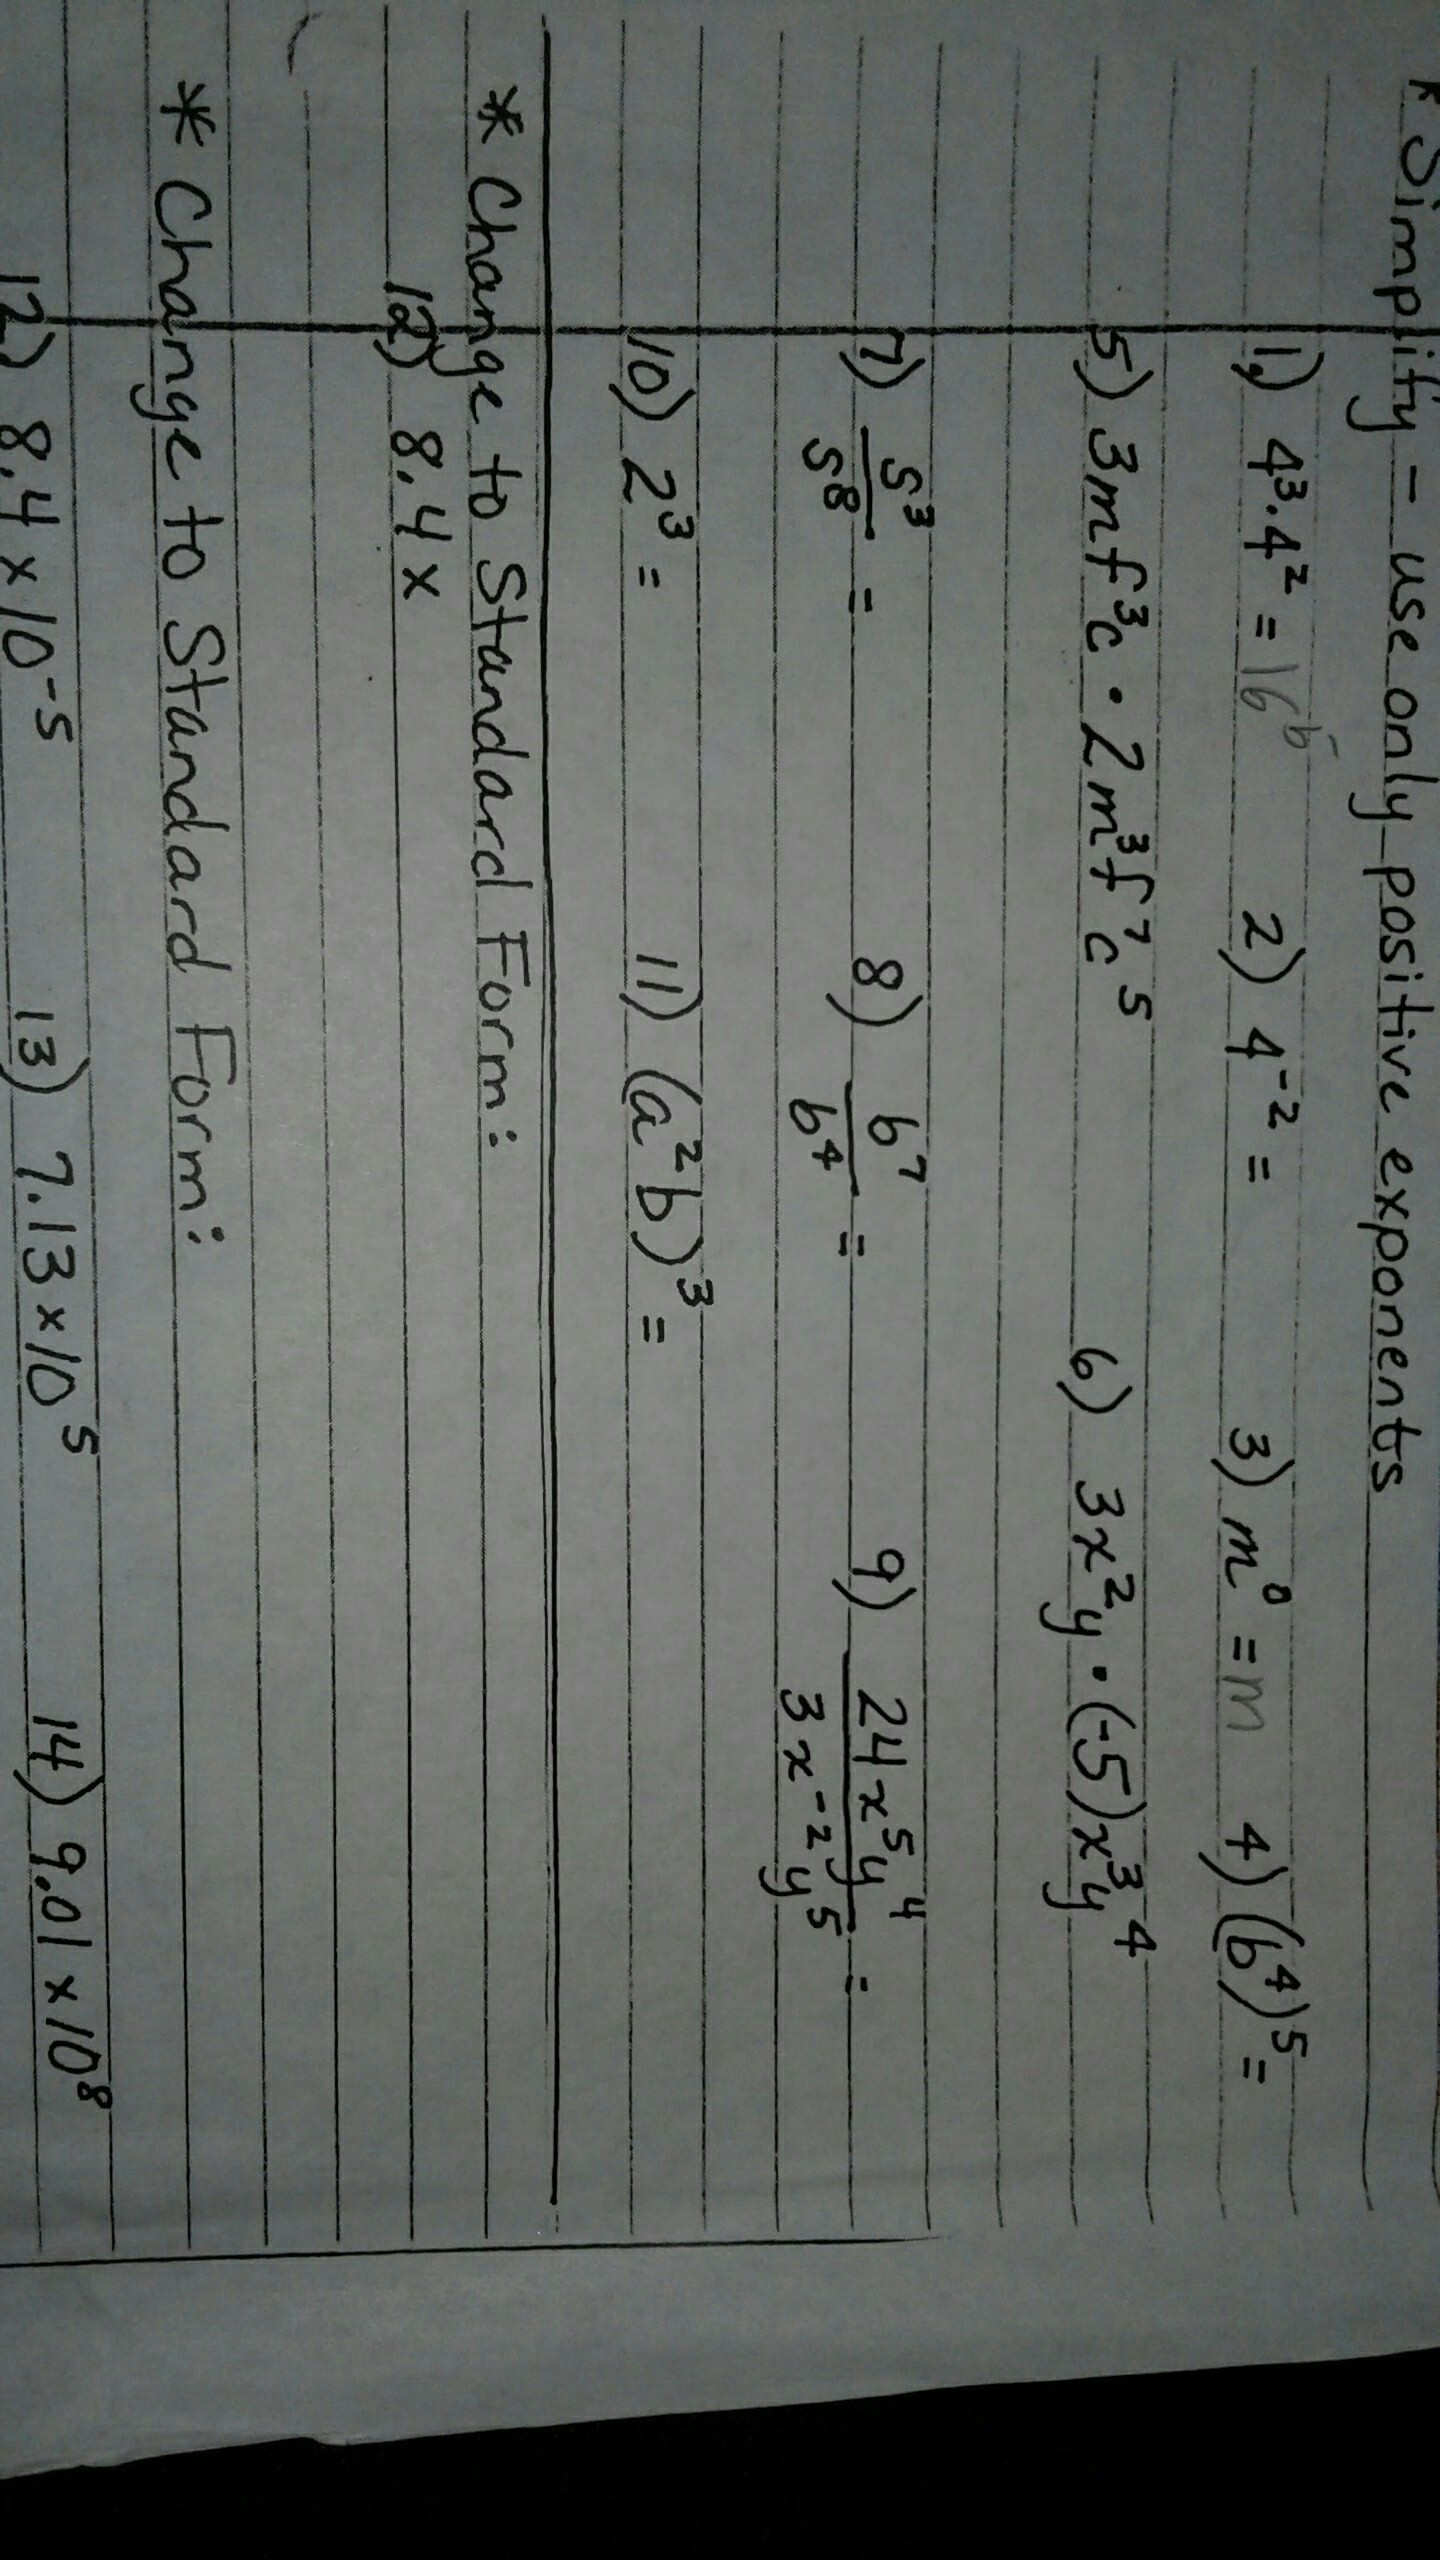 * Simplify - use only positive exponents
1.) 4³·4² = 16⁵ 2) 4⁻² = 3) m⁰ = m 4) (b⁴)⁵ =
5) 3mf³c · 2m³f⁷c⁵ 6) 3x²y · (-5)x³y⁴
7) s³/s⁸ = 8) b⁷/b⁴ = 9) 24x⁵y⁴/3x⁻²y⁵ =
10) 2³ = 11) (a²b)³ =
* Change to Standard Form:
12) 8.4 x
* Change to Standard Form:
12) 8.4 x 10⁻⁵ 13) 7.13 x 10⁵ 14) 9.01 x 10⁸